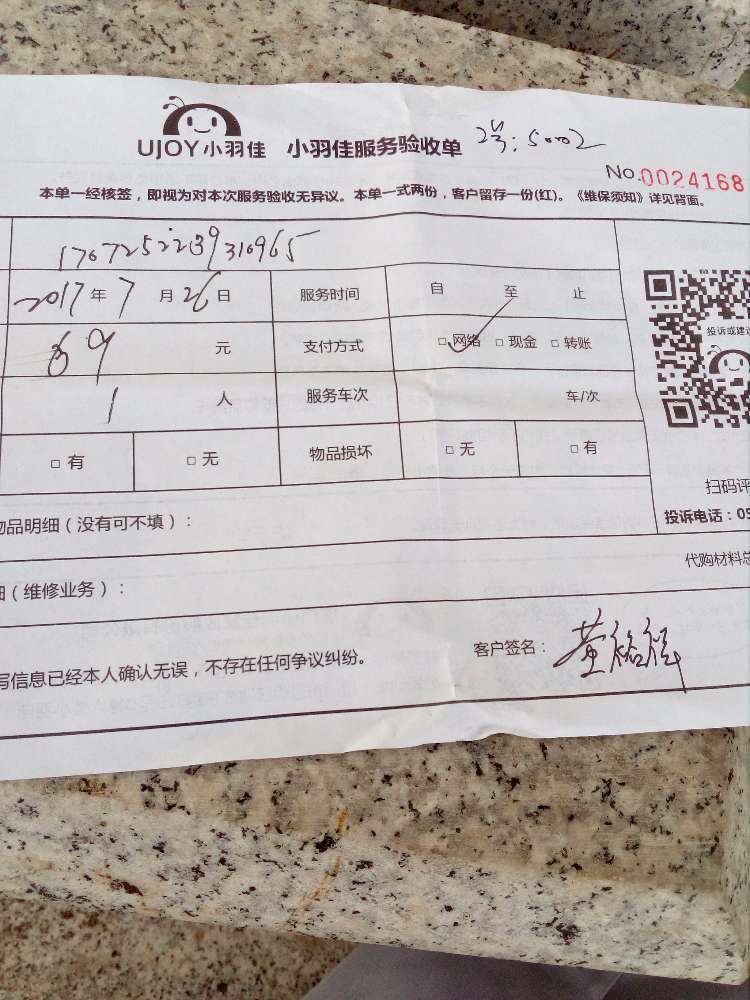 UJOY小羽佳 小羽佳服务验收单
5002
No.0024168
本单一经核签，即视为对本次服务验收无异议。本单一式两份，客户留存一份(红)。《维保须知》详见背面。
2017年7月26日 服务时间 自 至 止
69元 支付方式 □网络 □现金 □转账
1人 服务车次 车/次
□有 □无 物品损坏 □无 □有
投诉或建议
扫码评
投诉电话：05
物品明细（没有可不填）：
代购材料总
细（维修业务）：
写信息已经本人确认无误，不存在任何争议纠纷。
客户签名：